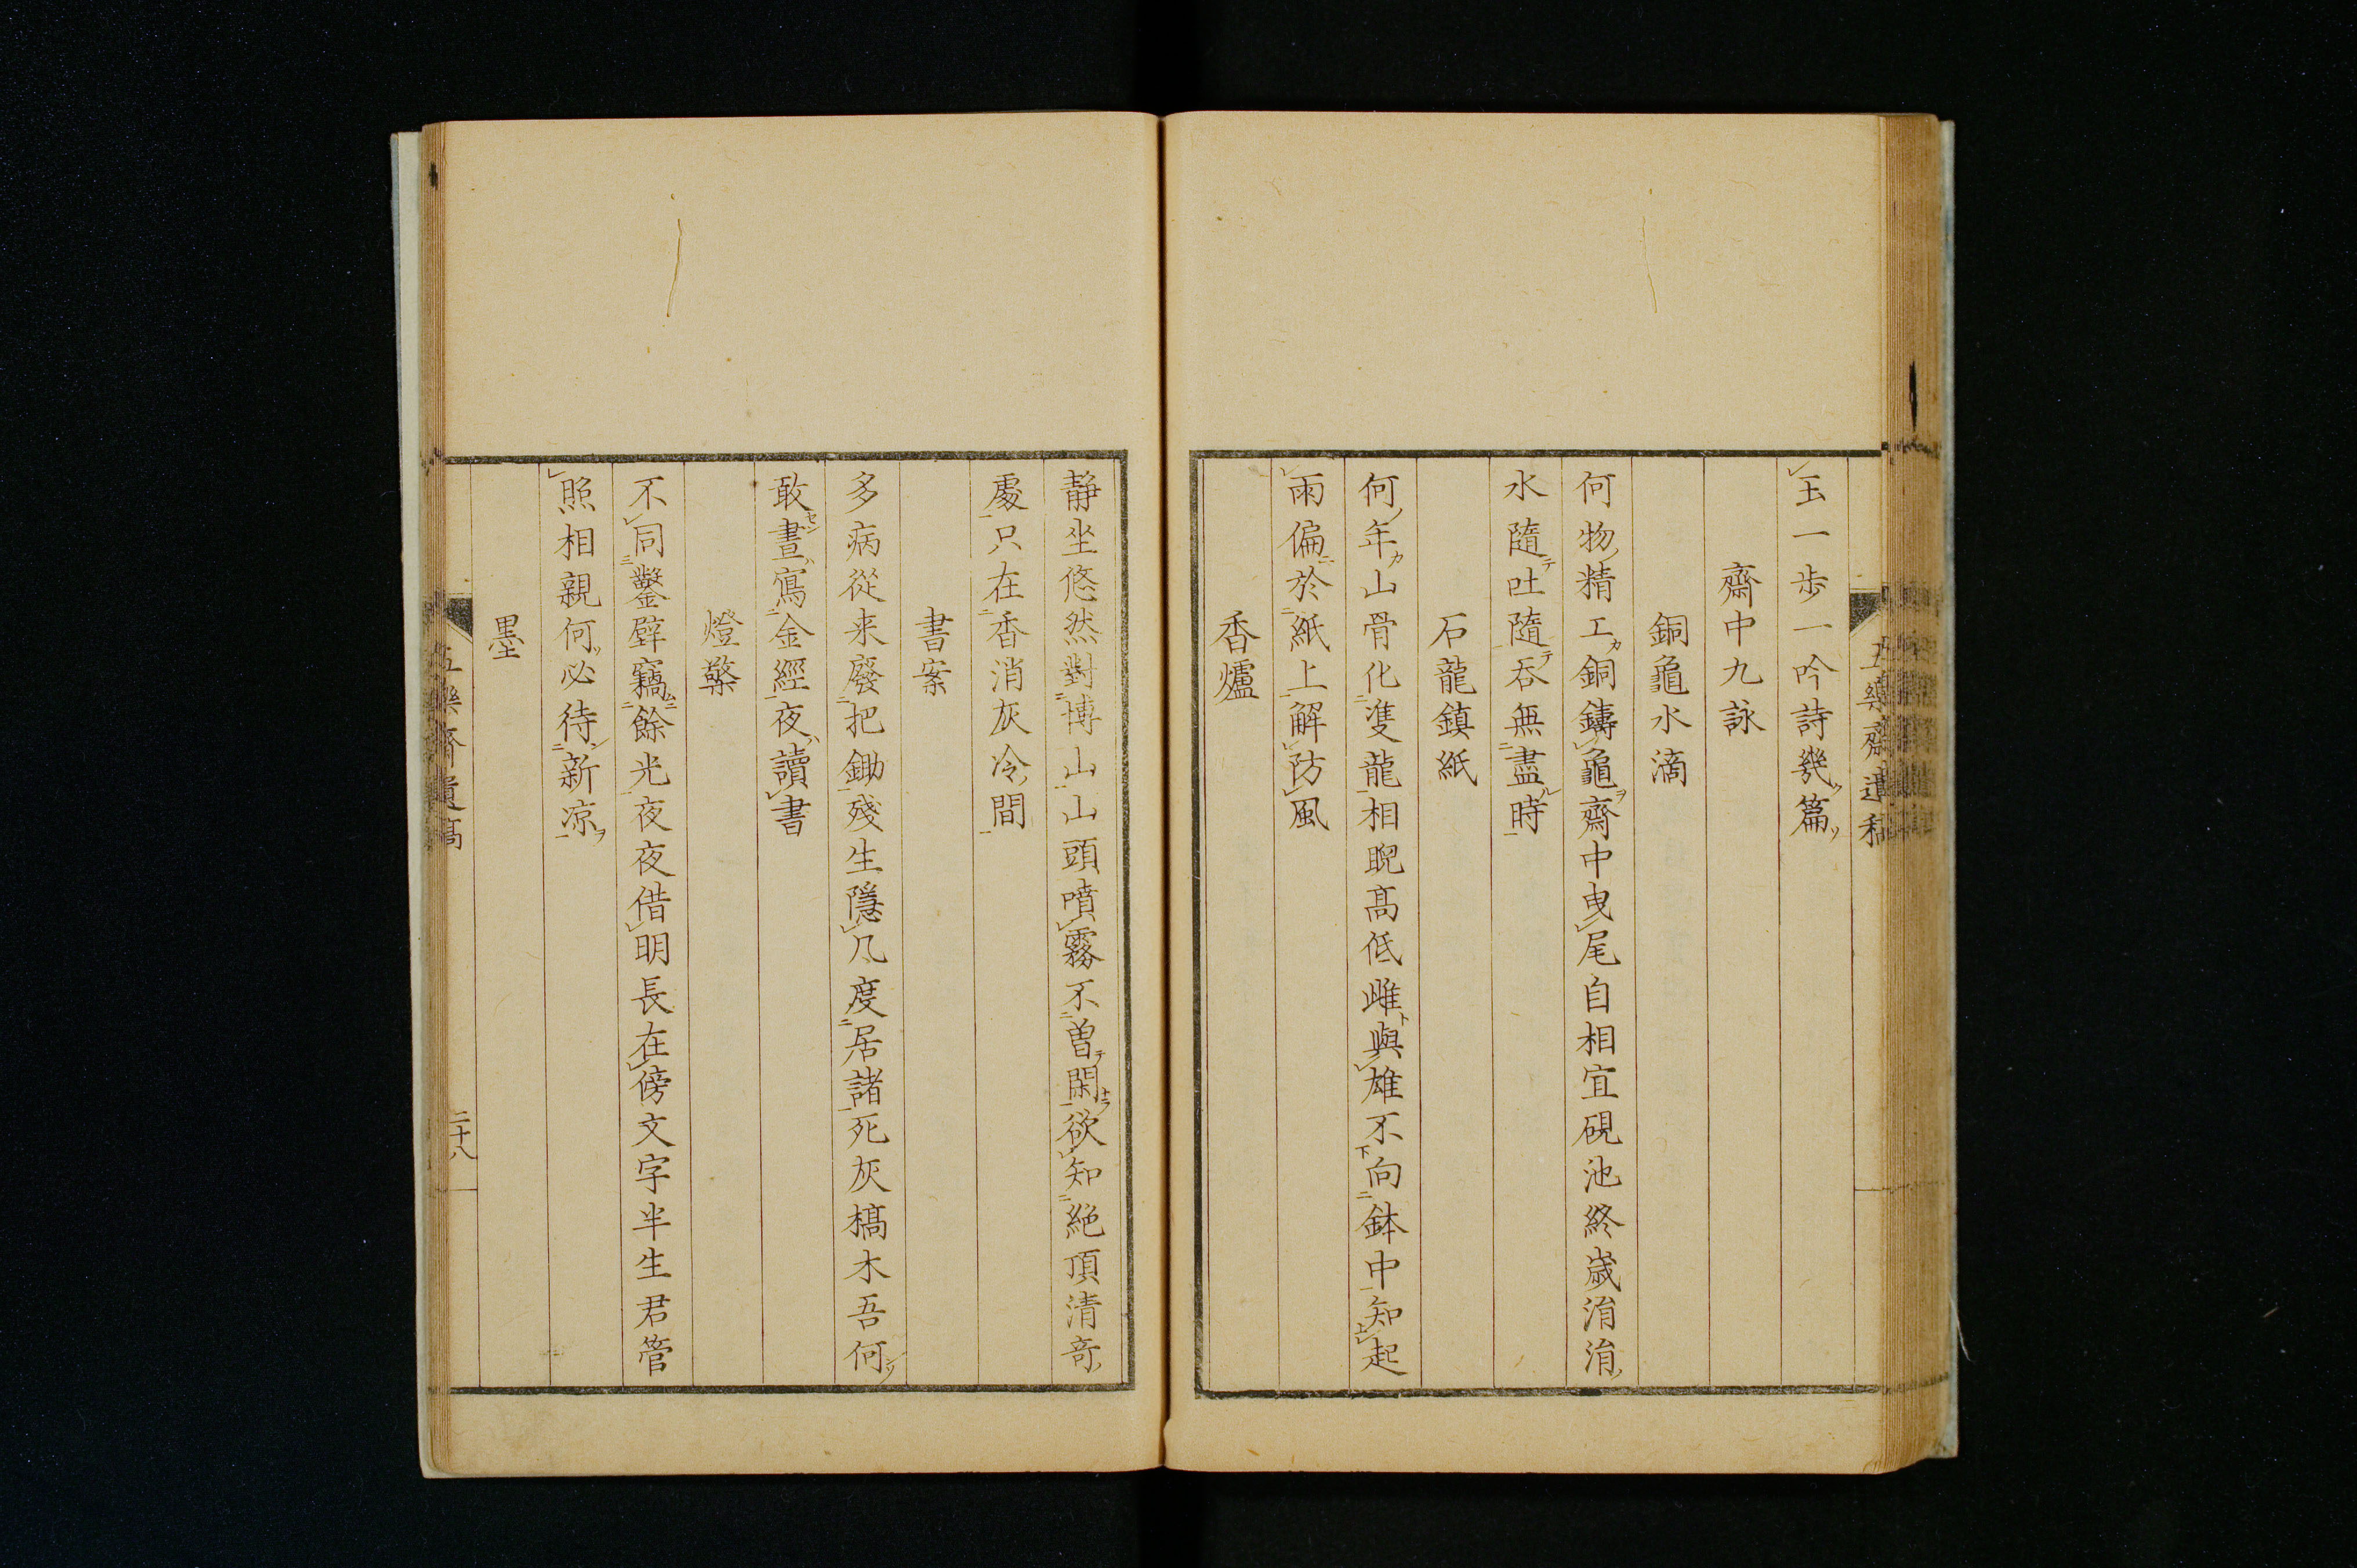 五樂齋遺稿
玉一歩一吟詩幾篇
齋中九詠
銅龜水滴
何物精工銅鑄龜齋中曳尾自相宜硯池終歳涓涓
水隨吐隨呑無盡時
石龍鎮紙
何年山骨化雙龍相睨髙低雌與雄不向鉢中知起
雨偏於紙上解防風
香爐
靜坐悠然對博山山頭噴霧不曽閑欲知絶頂清竒
處只在香消灰冷間
書案
多病從来廢把鋤殘生隱几度居諸死灰槁木吾何
敢晝寫金經夜讀書
燈檠
不同鑿壁竊餘光夜夜借明長在傍文字半生君管
照相親何必待新凉
墨
五樂齋遺髙
二十八